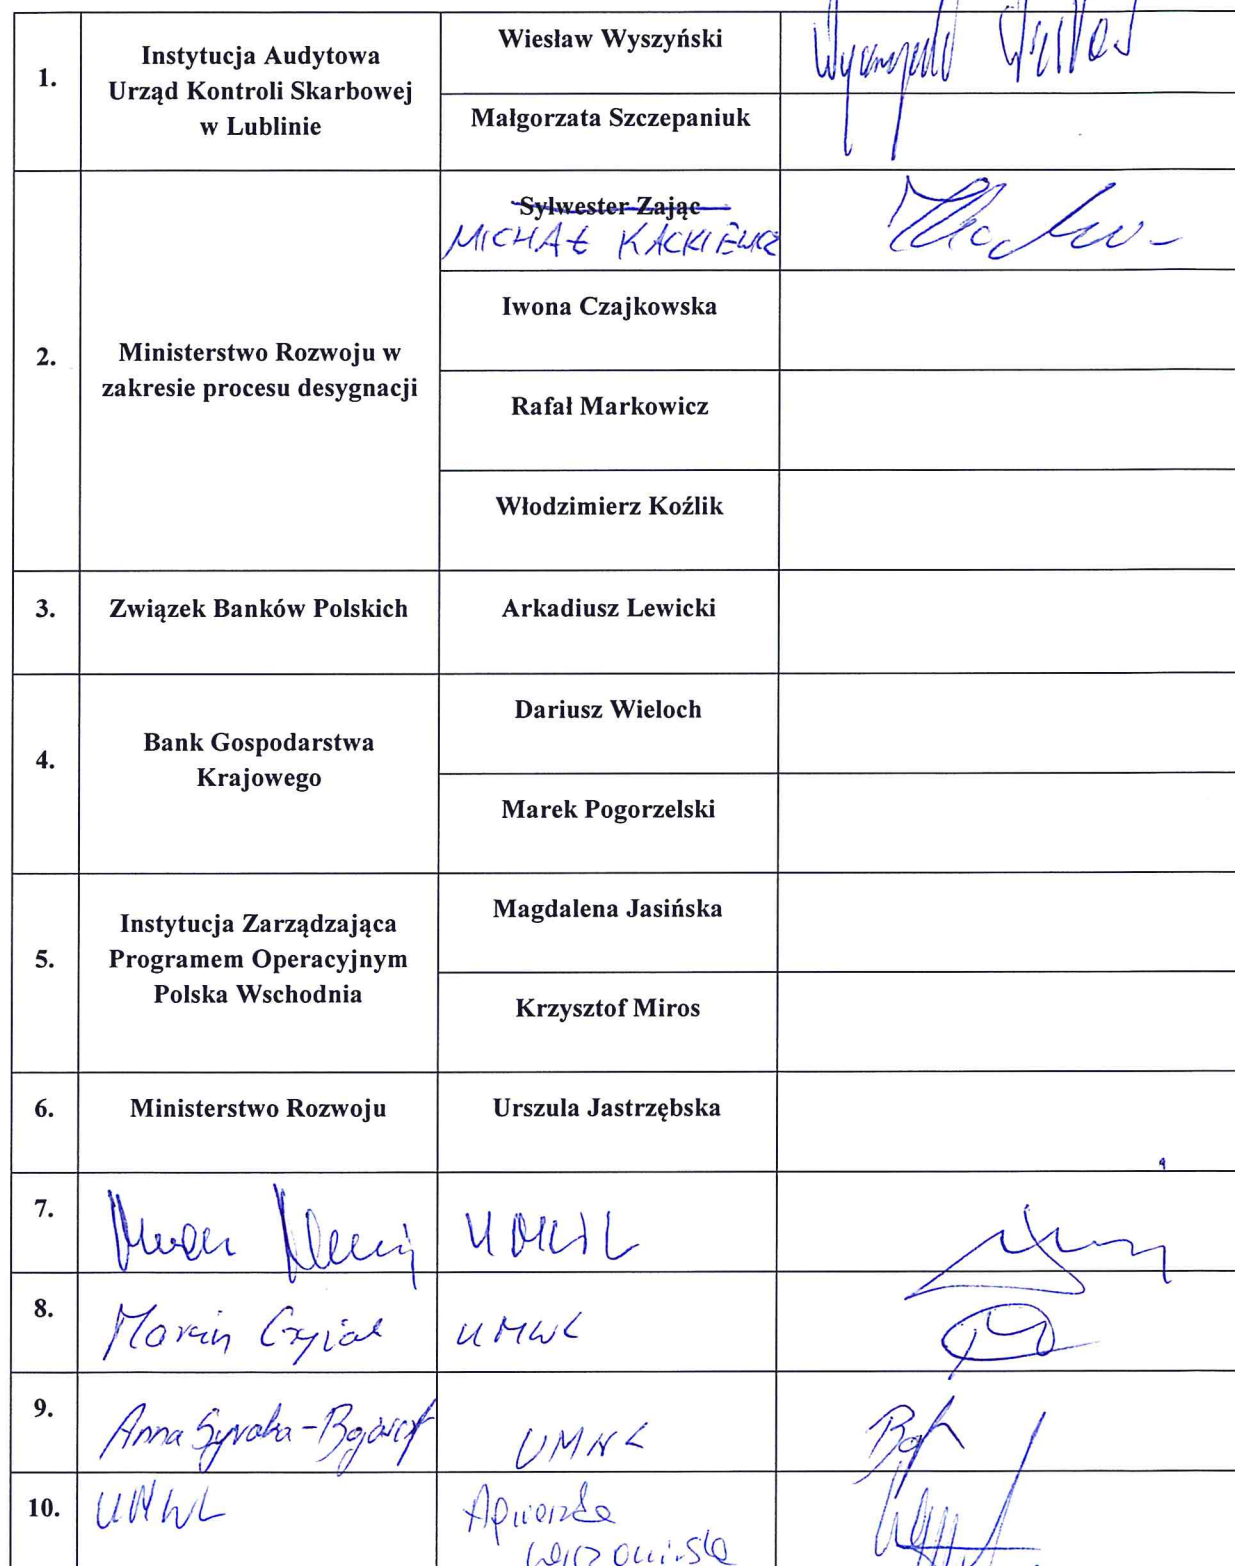 1.
Instytucja Audytowa
Urząd Kontroli Skarbowej
w Lublinie
Wiesław Wyszyński
Małgorzata Szczepaniuk
2.
Ministerstwo Rozwoju w
zakresie procesu desygnacji
Sylwester Zając
MICHAŁ KACKIEWICZ
Iwona Czajkowska
Rafał Markowicz
Włodzimierz Koźlik
3.
Związek Banków Polskich
Arkadiusz Lewicki
4.
Bank Gospodarstwa
Krajowego
Dariusz Wieloch
Marek Pogorzelski
5.
Instytucja Zarządzająca
Programem Operacyjnym
Polska Wschodnia
Magdalena Jasińska
Krzysztof Miros
6.
Ministerstwo Rozwoju
Urszula Jastrzębska
7.
8.
Marcin
UMWL
9.
Anna
UMWL
10.
UMWL
Agnieszka